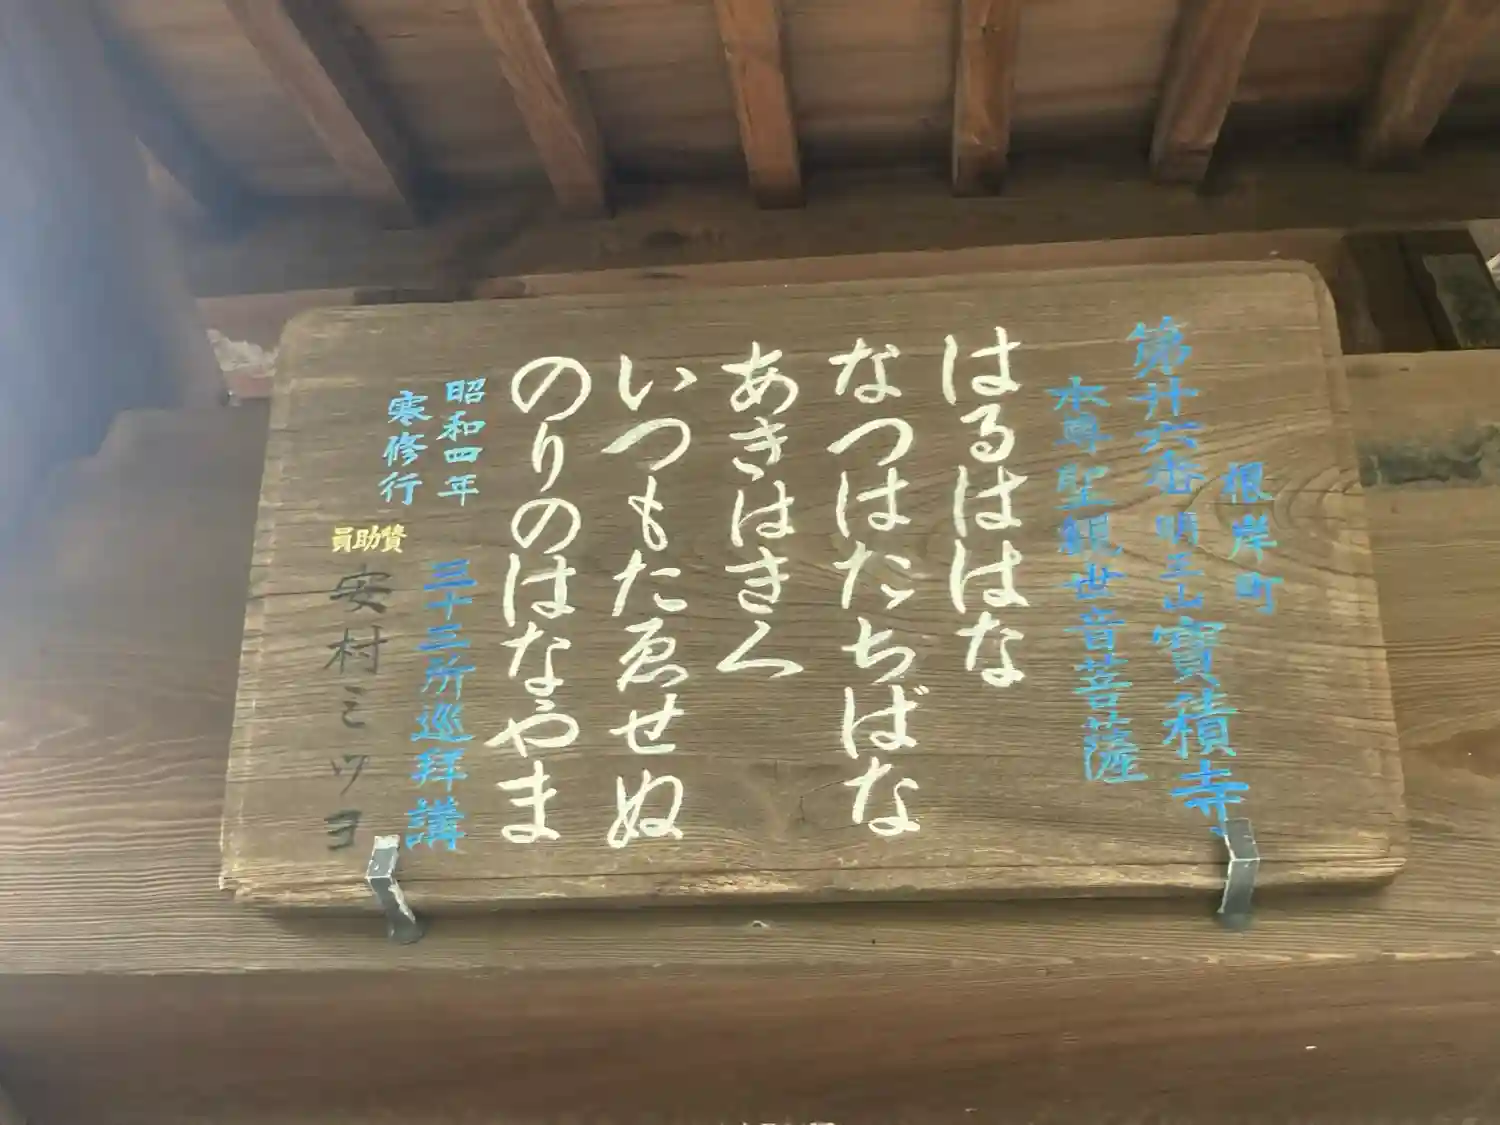 根岸町
第廿六番 明王山 寶積寺
本尊聖観世音菩薩
はるははな
なつはたちばな
あきはきく
いつもたゑせぬ
のりのはなやま
昭和四年
寒修行
三十三所巡拜講
賛助員
安村ミツヨ